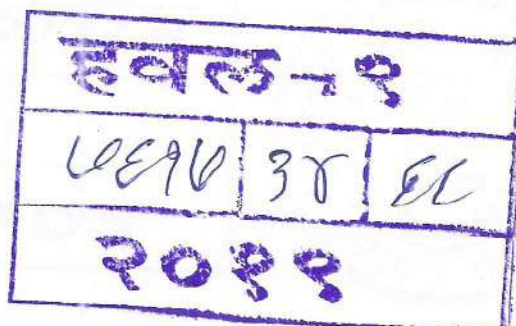 हवल-१
७६१७ ३४ ६८
२०११